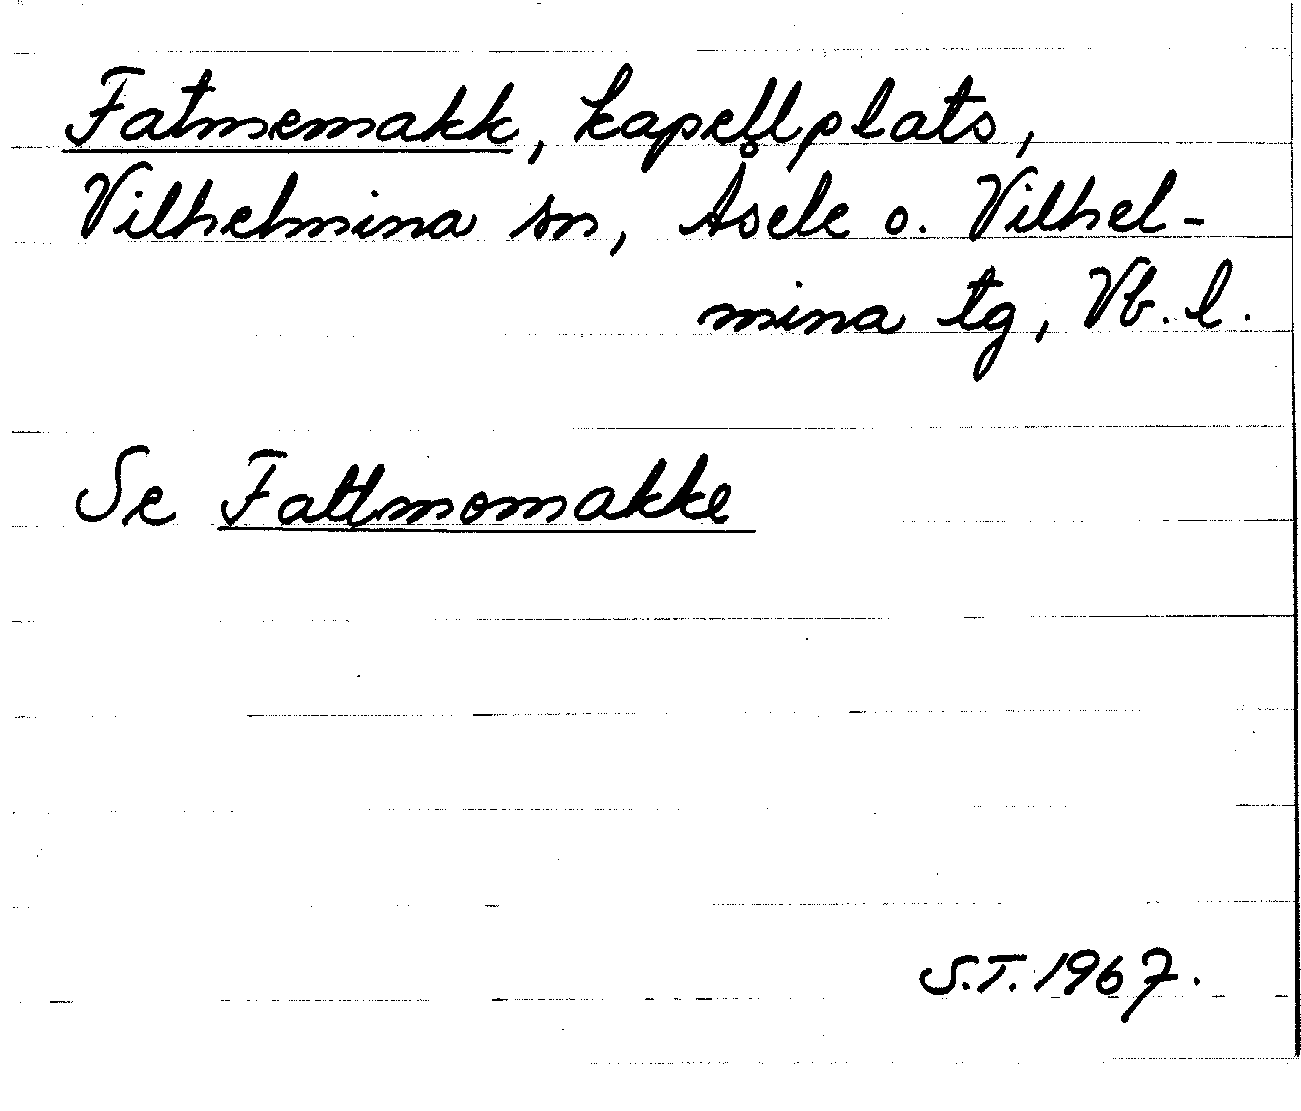 Fatmemakk, kapellplats,
Vilhelmina sn, Åsele o. Vilhel-
mina tg, Vb. l.
Se Fattmomakke
S.T. 1967.